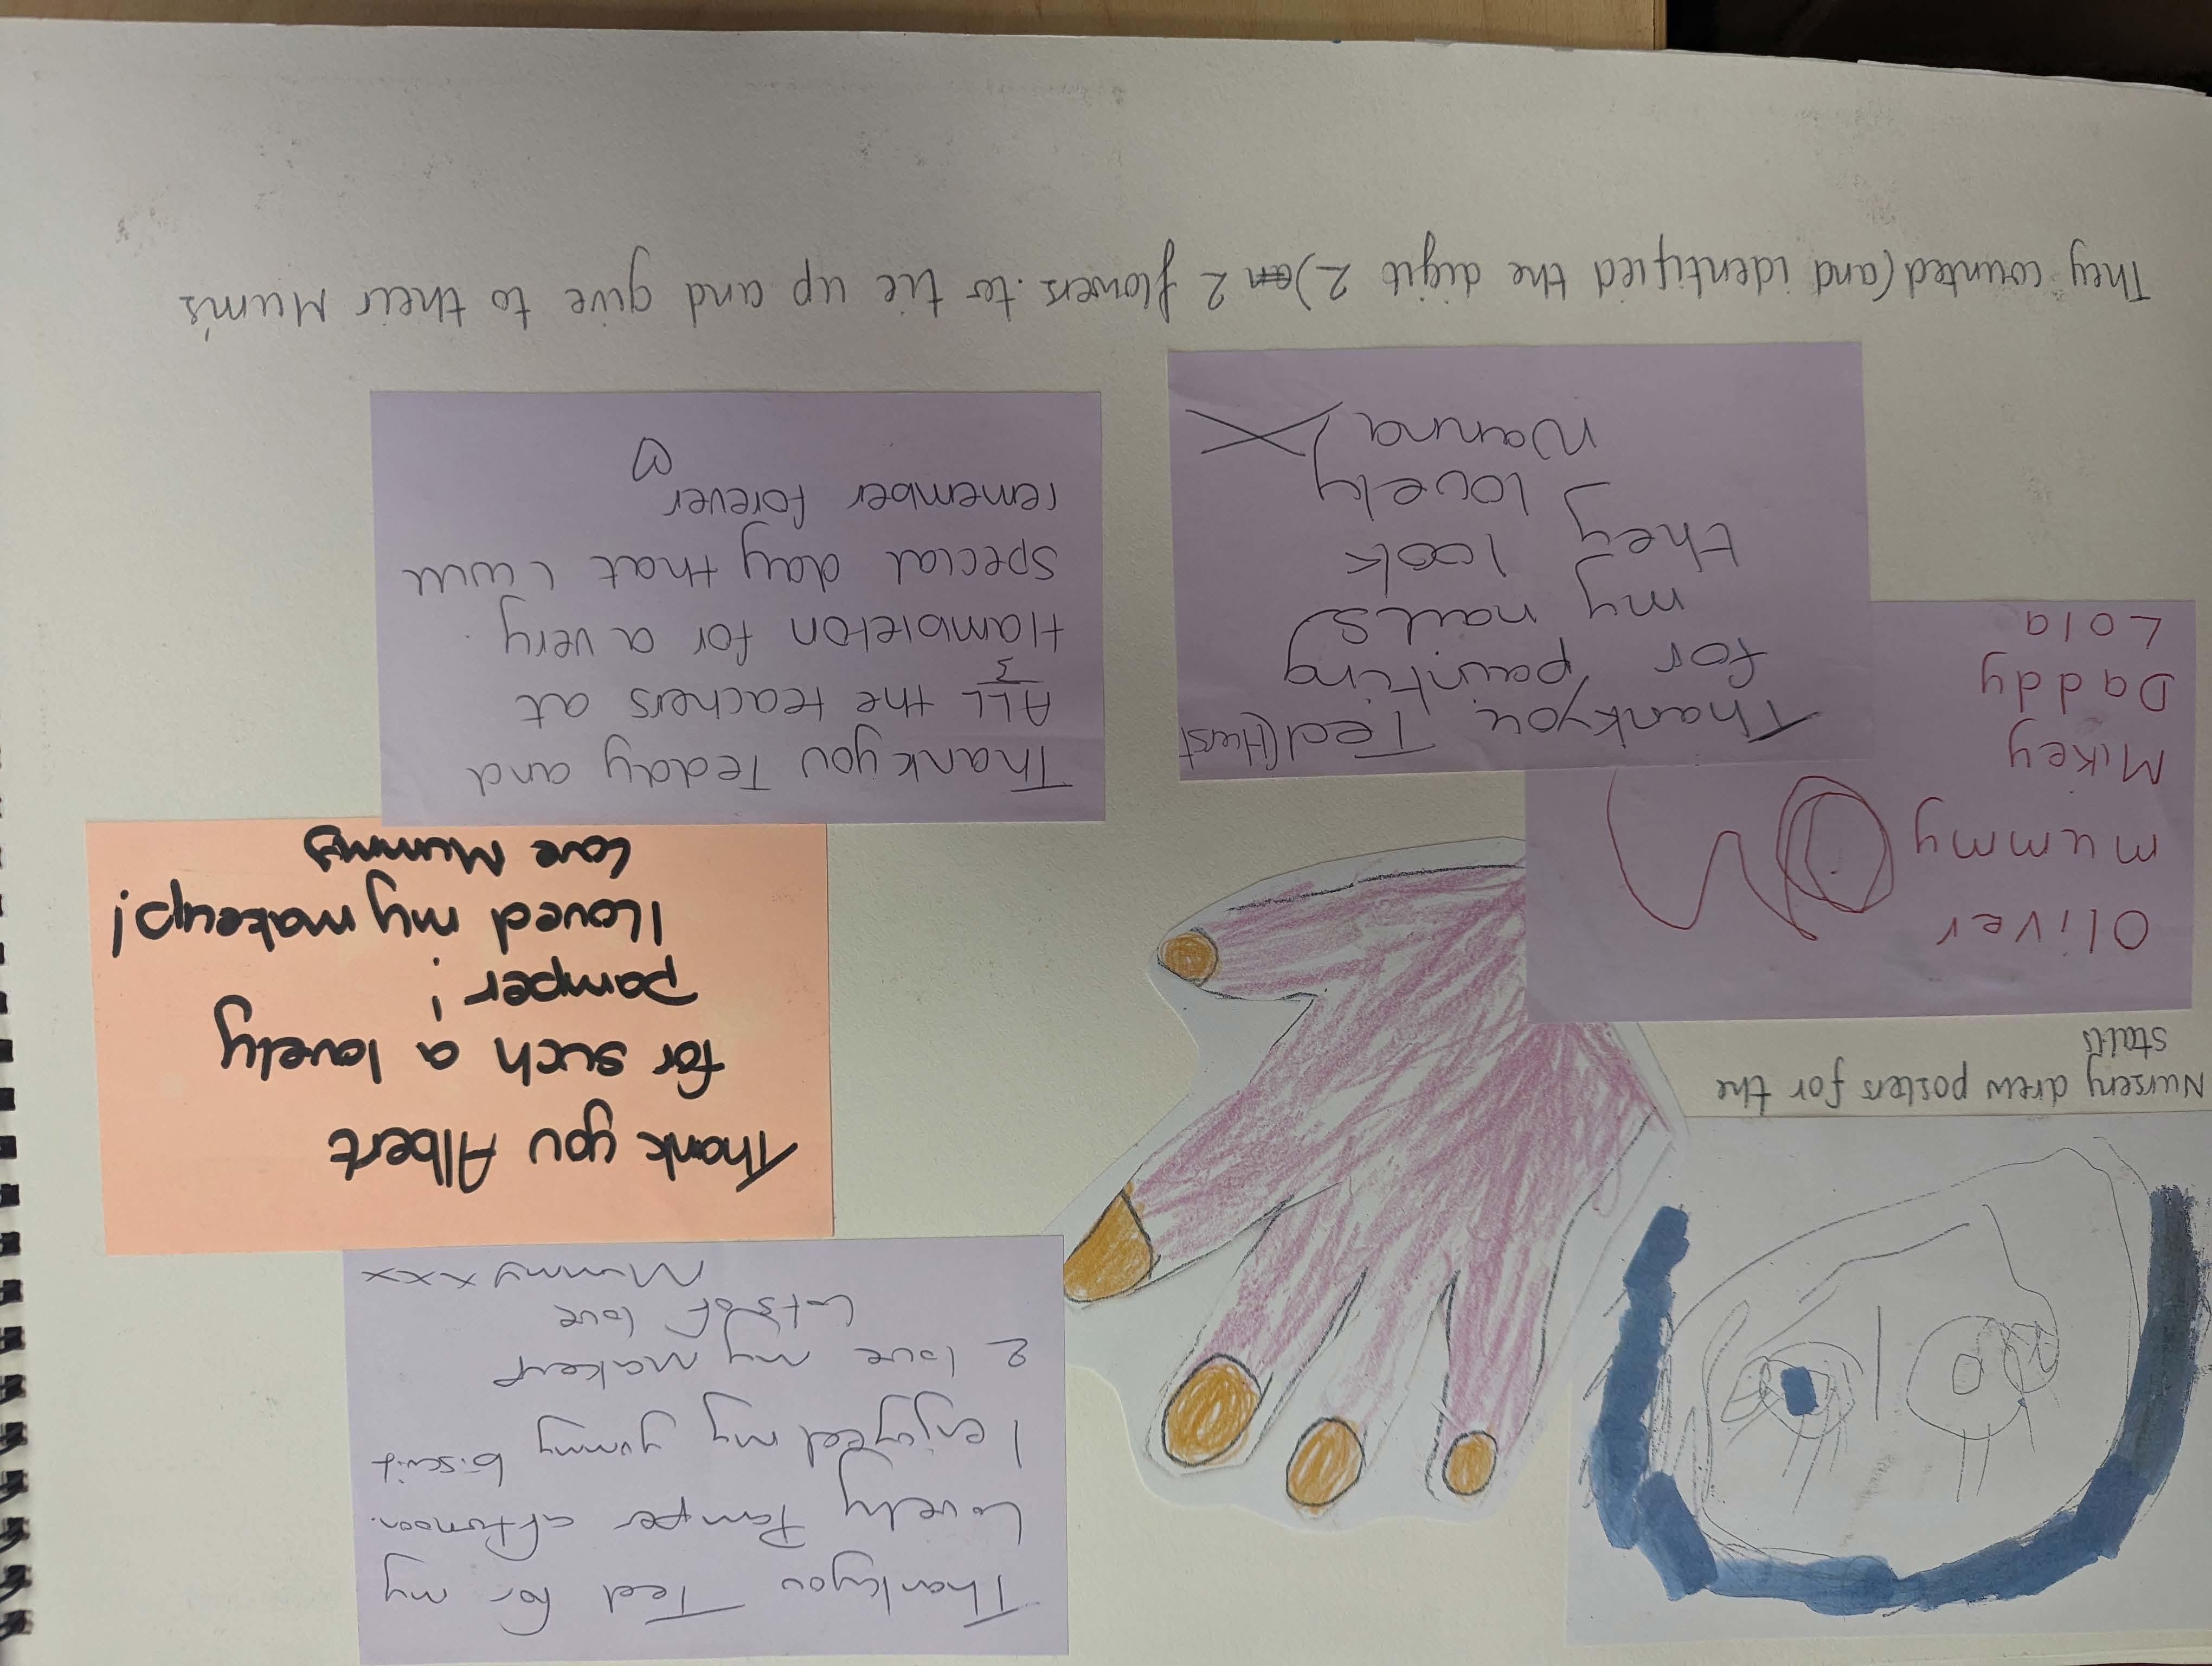 Nursery drew posters for the
stalls
Oliver
mummy
Mikey
Daddy
Lola
Thankyou Ted (Hurst
for painting
my nails
they look
lovely
Nanna X
Thankyou Ted for my
Lovely Pamper afternoon.
I enjoyed my yummy biscuit
& love my makeup
Lots of love
Mummy xxx
Thank you Albert
for such a lovely
pamper!
I loved my makeup!
Love Mummy
Thankyou Teddy and
ALL the teachers at
Hambleton for a very
special day that i will
remember forever
They counted (and identified the digit 2) 2 flowers to tie up and give to their Mum's